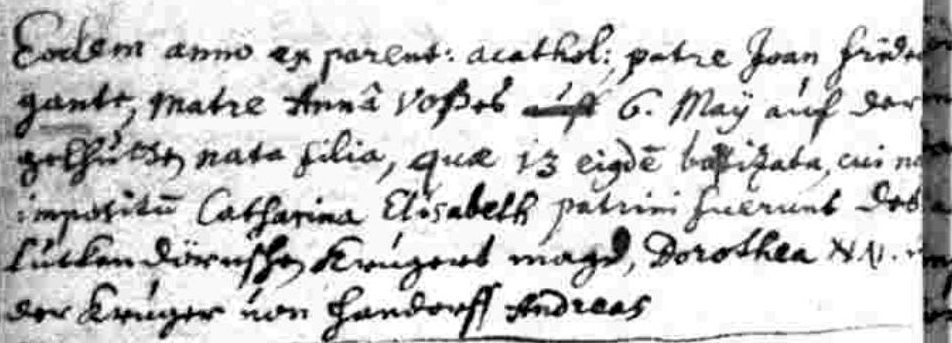 Eodem anno ex parent: acathol: patre Joan Fride
gante, Matre Annâ Voßes 6. Maÿ auf der
nata filia, quæ 13 eiqdē baptizata, cui no
impositū Catharina Elisabeth patrini fuerunt des
Krügers magd, Dorothea NN.
der Krüger von Handorff Andreas